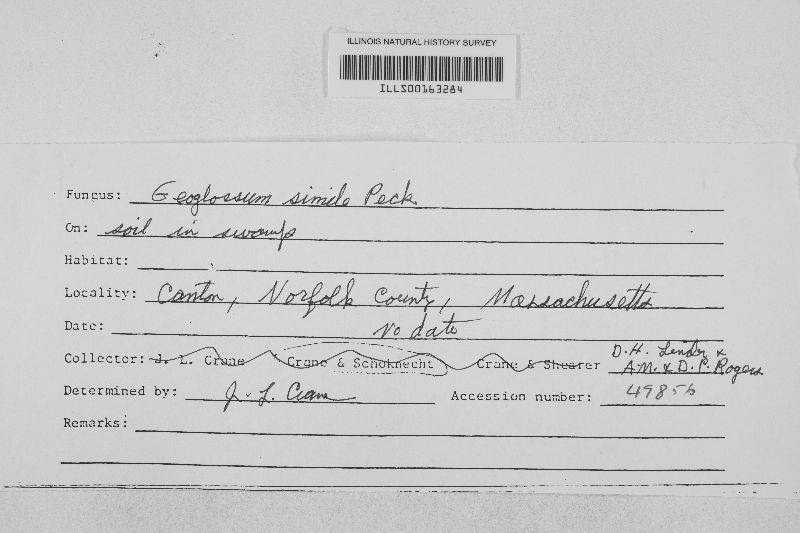 ILLINOIS NATURAL HISTORY SURVEY
ILLS00163284
Fungus: Geoglossum simile Peck
On: soil in swamp
Habitat:
Locality: Canton, Norfolk County, Massachusetts
Date: No date
Collector: J. L. Crane Crane & Schoknecht Crane & Shearer D.H. Linder & A.M. & D.P. Rogers
Determined by: J. L. Crane Accession number: 49856
Remarks: